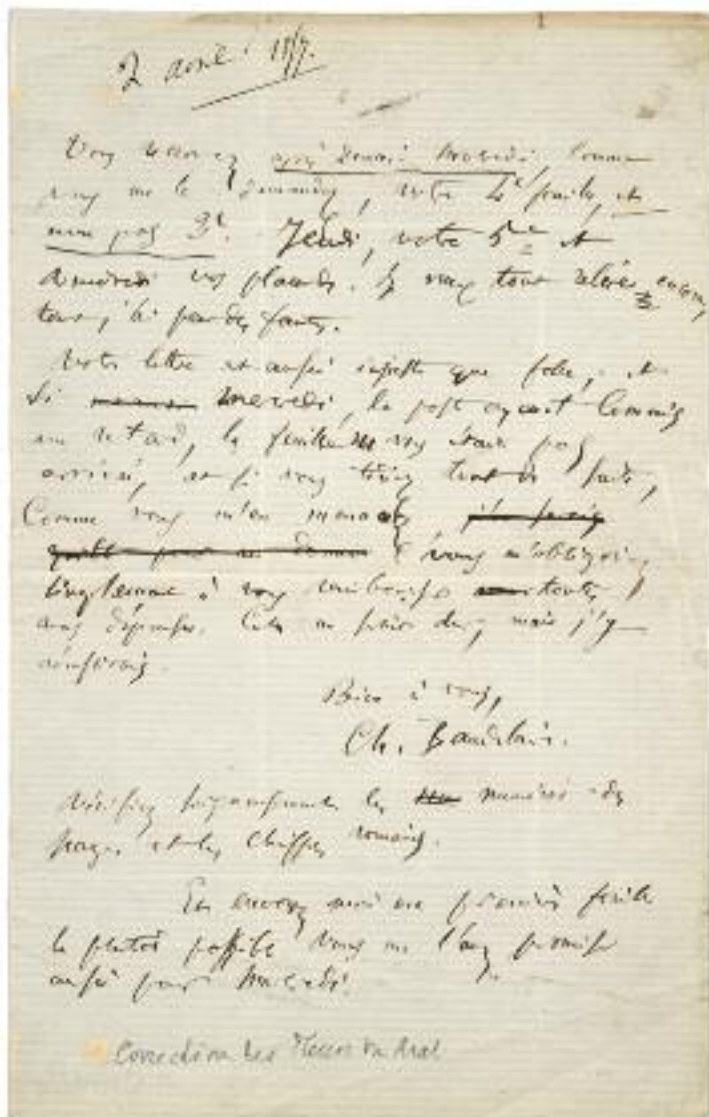 2 avril 1857.
Vous recevrez après demain mercredi, comme
vous me le demandez, votre 4e feuille, et
non pas 3e. Jeudi, votre 5e et
vos placards. tout
fautes.
Votre lettre est aussi injuste que folle, et
si mercredi, la poste ayant commis
un retard, la feuille ne vous était pas
arrivée, et si vous
Comme vous m'en menacez,
vous m'obligeriez
simplement à vous rembourser toutes
vos dépenses. Cela me serait dur, mais j'y
réussirais.
Bien à vous,
Ch. Baudelaire.
Vérifiez soigneusement les numéros des
pages et les chiffres romains.
Et envoyez moi ma première feuille
le plutôt possible. Vous me l'avez promise
aussi pour mercredi.
Correction des Fleurs du Mal